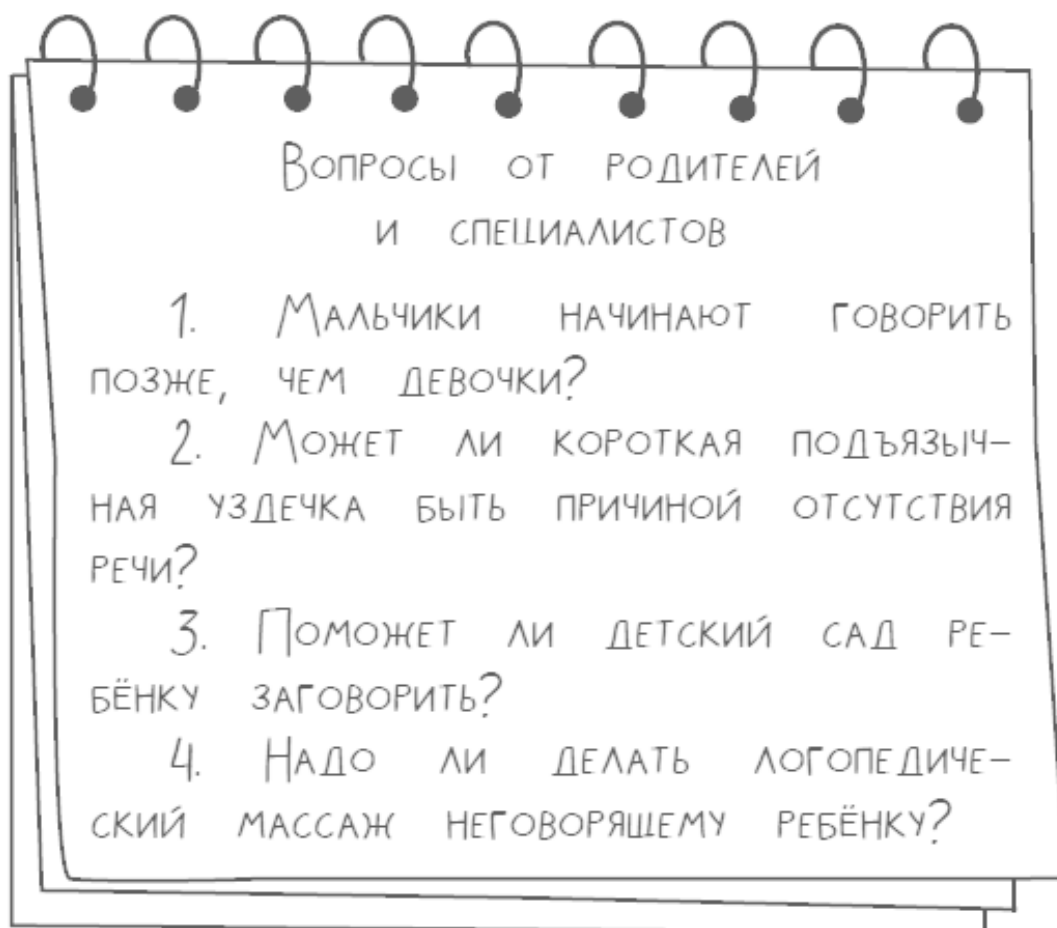 Вопросы от родителей
и специалистов
1. Мальчики начинают говорить
позже, чем девочки?
2. Может ли короткая подъязыч-
ная уздечка быть причиной отсутствия
речи?
3. Поможет ли детский сад ре-
бёнку заговорить?
4. Надо ли делать логопедиче-
ский массаж неговорящему ребёнку?